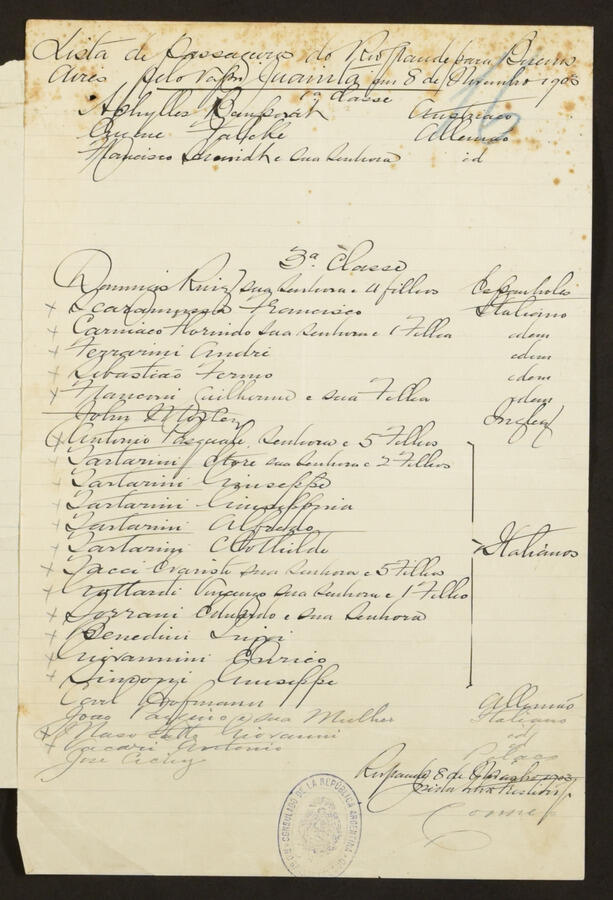 Lista de Passageiros do Rio Grande para Buenos
Aires pelo Vapor Juanita em 8 de Novembro 1903
1ª Classe
Austriaco
Eugene Allemão
Francisco Schmidt e sua senhora id
3ª Classe
Domingos Ruiz, sua senhora e 4 filhos Espanholes
Scaramuzza Francisco Italiano
Carniaco Florindo sua senhora e 1 Filha idem
Ferrarini André idem
Sebastião Fermo idem
Manconi Guilherme e sua Filha idem
John Inglez
Antonio Pasquale, Senhora e 5 Filhos
Tartarini Etore sua senhora e 2 Filhos
Tartarini Giuseppe
Tartarini Giuseppina
Tartarini Alfredo
Tartarini Clothilde
Italianos
sua senhora e 5 Filhos
Vincenzo sua senhora e 1 Filho
Eduardo e sua Senhora
Benedini Luigi
Giovannini Enrico
Giuseppe
Carl Hofmann Allemão
João e sua Mulher Italiano
Giovanni id
Vacari Antonio id
José
Rio Grande 8 de Novembro 1903
CONSULADO DE LA REPÚBLICA ARGENTINA